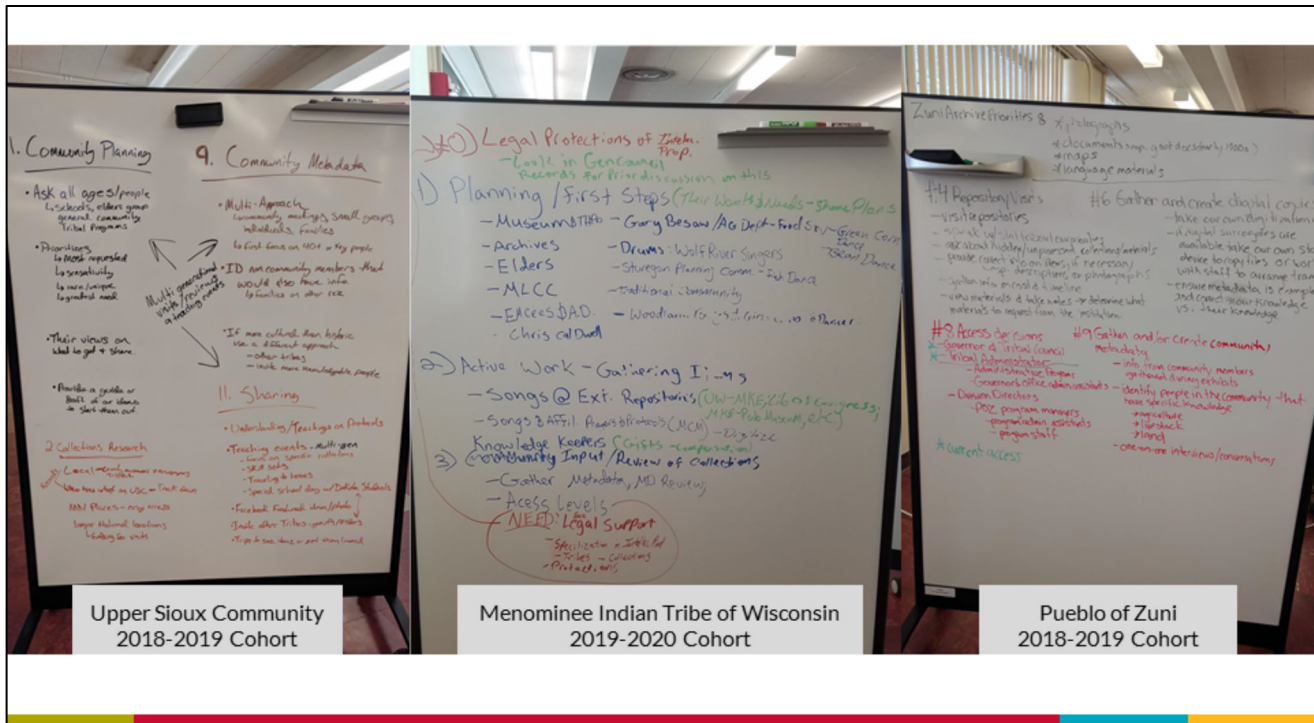 1. Community Planning
• Ask all ages/people
↳ schools, elders group
general community
Tribal Programs
• Priorities
↳ Most requested
↳ sensitivity
↳ rare/unique
↳ greatest need
• Their views on
what to get & share.
• Provide a guide or
draft of our ideas
to start them out.
Multi generational
visits/reviews
2 Collections Research
Local
MN Places
Larger National locations
↳ Funding for visits
9. Community Metadata
• Multi-Approach
↳ community meetings, small groups,
individuals, families
↳ First focus on 40+ or key people
• ID non community members that
would also have info.
↳ families on other rez
• If more cultural than historic
use a different approach
- other tribes
- invite more knowledgeable people
11. Sharing
• Understanding/Teachings on Protocols
• Teaching events - multi gen
- focus on specific collections
- skill sets
- Traveling to homes
- Special school day w/ Dakota Students
• Facebook featured item/photo
• Invite other Tribes - youth/elders
Upper Sioux Community
2018-2019 Cohort
0) Legal Protections of Intell.
Prop.
- Look in Gen Council
Records for Prior discussion on this
1) Planning / First Steps (Their Wants & Needs - Share Plans
- Museum & THPO - Gary Besaw/Ag Dept - Food Sov - Green Corn
Dance
- Archives - Drums: Wolf River Singers
- Elders - Sturgeon Planning Comm. - Fish Dance
- MLCC - Traditional Community
- Emcees & A.D. - Woodland
- Chris Caldwell
2) Active Work - Gathering Items
- Songs @ Ext. Repositories (UW-MKE, Lib of Congress,
MKE-Pub Museum, etc)
- Songs & Affil. Protocols (MCM) - Digitize
Knowledge Keepers (Gifts - compensation)
3) Community Input/Review of Collections
- Gather Metadata, MD Reviews
- Acess Levels
NEED: Legal Support
- Specilization in Intellectual
- Tribes - Collections
- Protections
Menominee Indian Tribe of Wisconsin
2019-2020 Cohort
Zuni Archive Priorities
* photographs
* documents
* maps
* language materials
#4 Repository Visits
- visit repositories
- ask about hidden/unprocessed collections/materials
- provide context info on items, if necessary
↳ descriptions or photographs
- view materials & take notes → determine what
materials to request from the institution
#6 Gather and create digital copies
- take our own digitization
- if digital surrogates are
available take our own storage
device to copy files or work
with staff to arrange transfer
- ensure metadata is complete
and correct
vs. their knowledge
#8 Access decisions
- Governor & Tribal Council
- Tribal Administrator
- Administrative
- Governor's office administrators
- Division Directors
- program managers
- program admin assistants
- program staff
* current access
#9 Gather and/or create community
metadata
- info from community members
gathered during exhibits
- identify people in the community that
have specific knowledge
→ agriculture
→ livestock
→ land
- one-on-one interviews/conversations
Pueblo of Zuni
2018-2019 Cohort